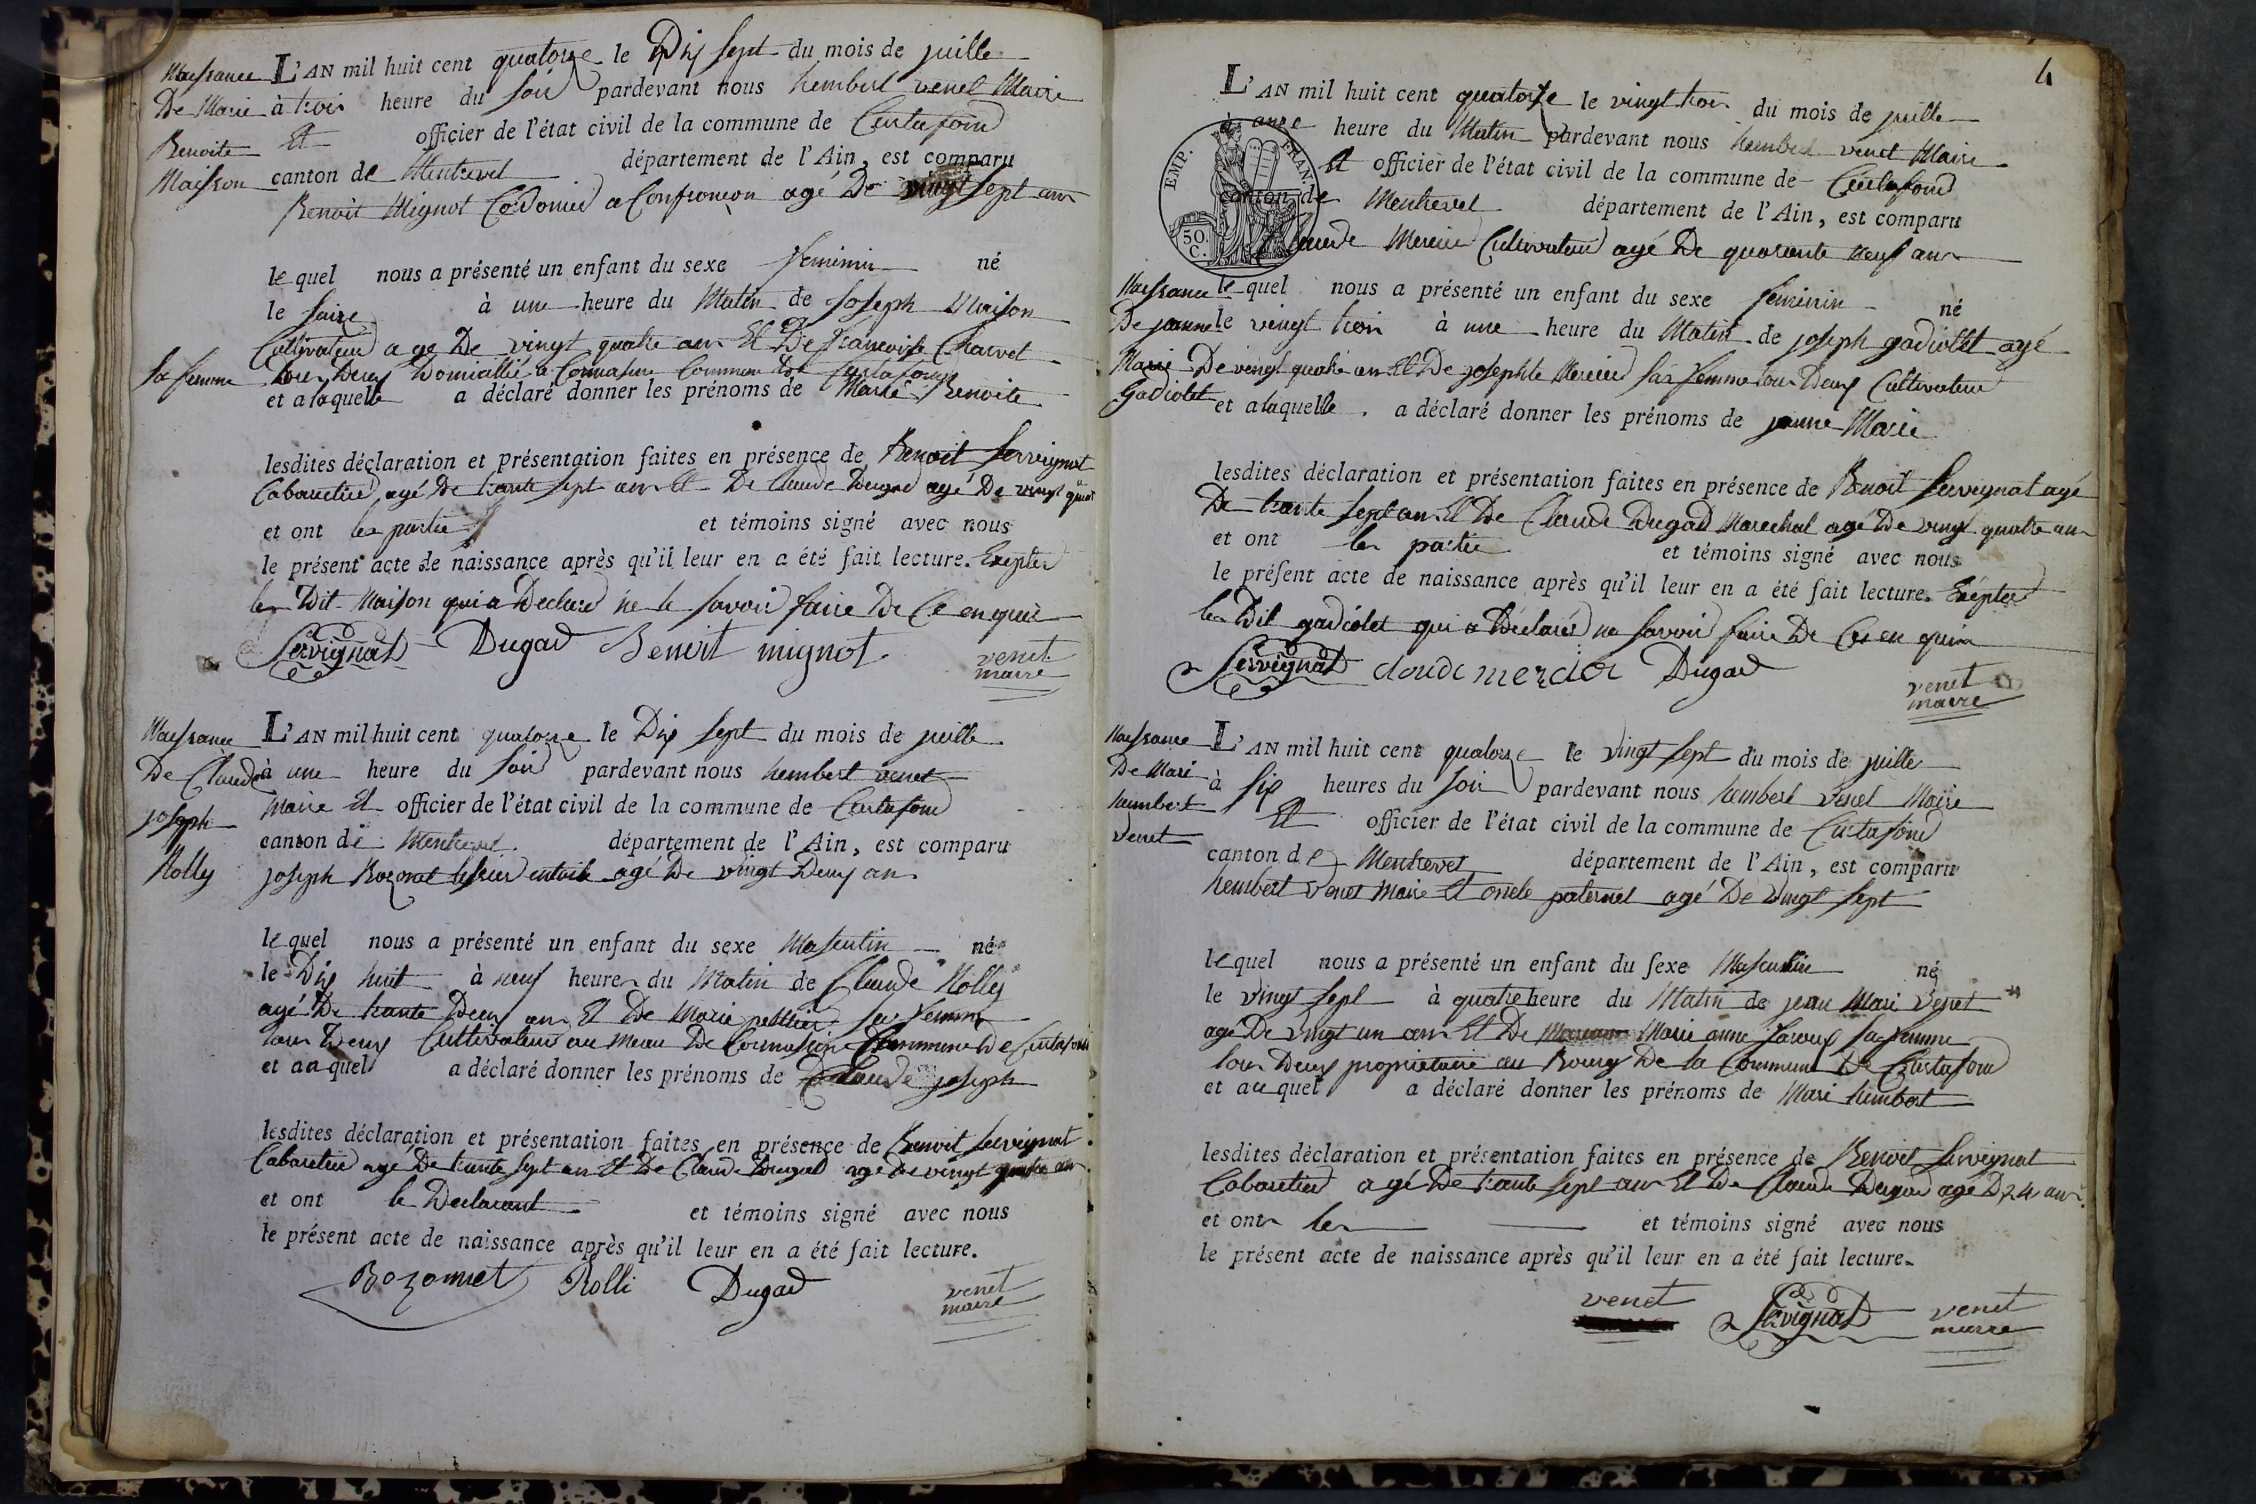 Naissance
De Marie
Benoite
Maison
L'AN mil huit cent quatorze le Dix sept du mois de juille
à trois heure du soir pardevant nous humbert venet Maire
Et officier de l'état civil de la commune de Curtafond
canton de Montrevel département de l'Ain, est comparu
Benoit Mignot Cordonier a Confrançon agé De vingt sept ans
le quel nous a présenté un enfant du sexe feminin né
le à une heure du Matin de Joseph Maison
Cultivateur agé De vingt quatre ans Et De francoise Charvet
sa femme tous Deux Domicillié a Commune De Curtafond
et a laquelle a déclaré donner les prénoms de Marie Benoite
lesdites déclaration et présentation faites en présence de Benoit Servignat
Cabaretier agé De trante sept ans Et De Claude Dugad agé De vingt quat
et ont les partie et témoins signé avec nous
le présent acte de naissance après qu'il leur en a été fait lecture. Exepter
les Dit Maison qui a Declaré ne le savoir faire De Ce enquis
Servignat Dugad Benoit mignot venet
maire
Naissance
De Claude
joseph
Rolly
L'AN mil huit cent quatorze le Dix sept du mois de juille
à une heure du soir pardevant nous humbert venet
Maire Et officier de l'état civil de la commune de Curtafond
canton de Montrevel département de l'Ain, est comparu
joseph Bozonet agé De vingt Deux an
le quel nous a présenté un enfant du sexe Masculin né
le Dix huit à neuf heures du Matin de Claude Rolly
agé De trante Deux ans Et De Marie pelltier sa femme
tous Deux Cultivateur au meau De Commune De Curtafond
et auquel a déclaré donner les prénoms de Claude joseph
lesdites déclaration et présentation faites en présence de Benoit Servignat
Cabaretier agé De trante sept an Et De Claude Dugad agé De vingt quatre an
et ont le Declarant et témoins signé avec nous
le présent acte de naissance après qu'il leur en a été fait lecture.
Bozonnet Rolli Dugad venet
maire
4
EMP. FRAN.
50.
C.
L'AN mil huit cent quatorze le vingt trois du mois de juille
à onze heure du Matin pardevant nous humbert venet Maire
Et officier de l'état civil de la commune de Curtafond
canton de Montrevel département de l'Ain, est comparu
Claude Mercier Cultivateur agé De quarante neuf ans
Naissance
De janne
Marie
Gadiolet
le quel nous a présenté un enfant du sexe feminin né
le vingt trois à une heure du Matin de joseph gadiollet agé
De vingt quatre an Et De josephte Mercier sa femme tous Deux Cultivateur
et a laquelle a déclaré donner les prénoms de janne Marie
lesdites déclaration et présentation faites en présence de Benoit Servignat agé
De trante sept an Et De Claude Dugad Marechal agé De vingt quatre an
et ont les partie et témoins signé avec nous
le présent acte de naissance après qu'il leur en a été fait lecture. Exépter
les Dit gadiolet qui a Déclaré ne savoir faire De Ces en quis
Servignat claude mercier Dugad
venet
maire
Naissance
De Mari
humbert
venet
L'AN mil huit cent quatorze le vingt sept du mois de juille
à six heures du soir pardevant nous humbert venet Maire
Et officier de l'état civil de la commune de Curtafond
canton de Montrevel département de l'Ain, est comparu
humbert venet Maire Et oncle paternel agé De vingt sept
le quel nous a présenté un enfant du sexe Masculin né
le vingt sept à quatre heure du Matin de jean Mari venet
agé De vingt un ans Et De Marie anne sa femme
tous Deux propriétaire au Bourg De la Commune De Curtafond
et au quel a déclaré donner les prénoms de Mari humbert
lesdites déclaration et présentation faites en présence de Benoit Servignat
Cabaretier agé De trante sept ans Et De Claude Dugad agé D 24 an
et ont les et témoins signé avec nous
le présent acte de naissance après qu'il leur en a été fait lecture.
venet Servignat venet
maire